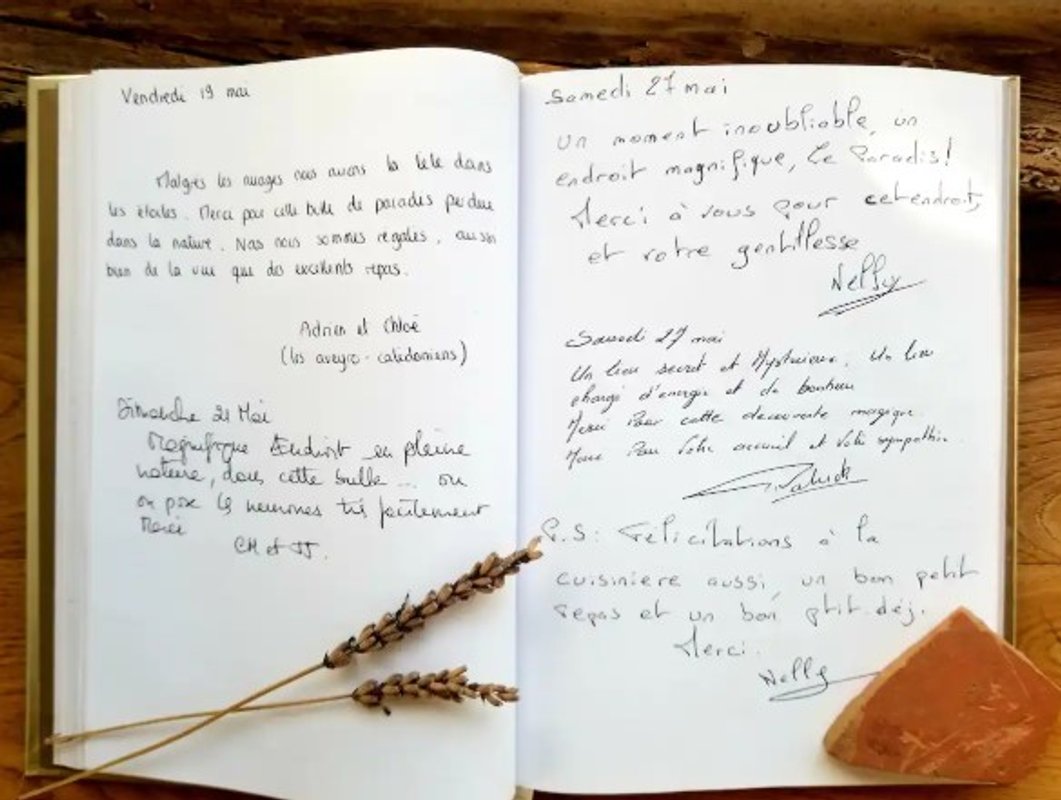 Vendredi 19 mai
Malgrès les nuages nous avons la tête dans
les étoiles. Merci pour cette bulle de paradis perdue
dans la nature. Nous nous sommes régalés, aussi
bien de la vue que des excellents repas.
Adrien et Chloé
(les aveyro-calédoniens)
Dimanche 21 Mai
Magnifique Endroit en pleine
nature, dans cette bulle ... où
on pose les neurones très facilement
Merci
CM et JJ.
Samedi 27 mai
un moment inoubliable, un
endroit magnifique, Le Paradis!
Merci à vous pour cet endroit,
et votre gentillesse
Nelly
Samedi 27 mai
Un lieu secret et Mystérieux. Un lieu
chargé d'energie et de bonheur
Merci Pour cette decouverte magique.
Merci Pour Votre accueil et Votre sympathie.
Patrick
P.S: Félicitations à la
cuisiniere aussi, un bon petit
repas et un bon ptit déj.
Merci.
Nelly